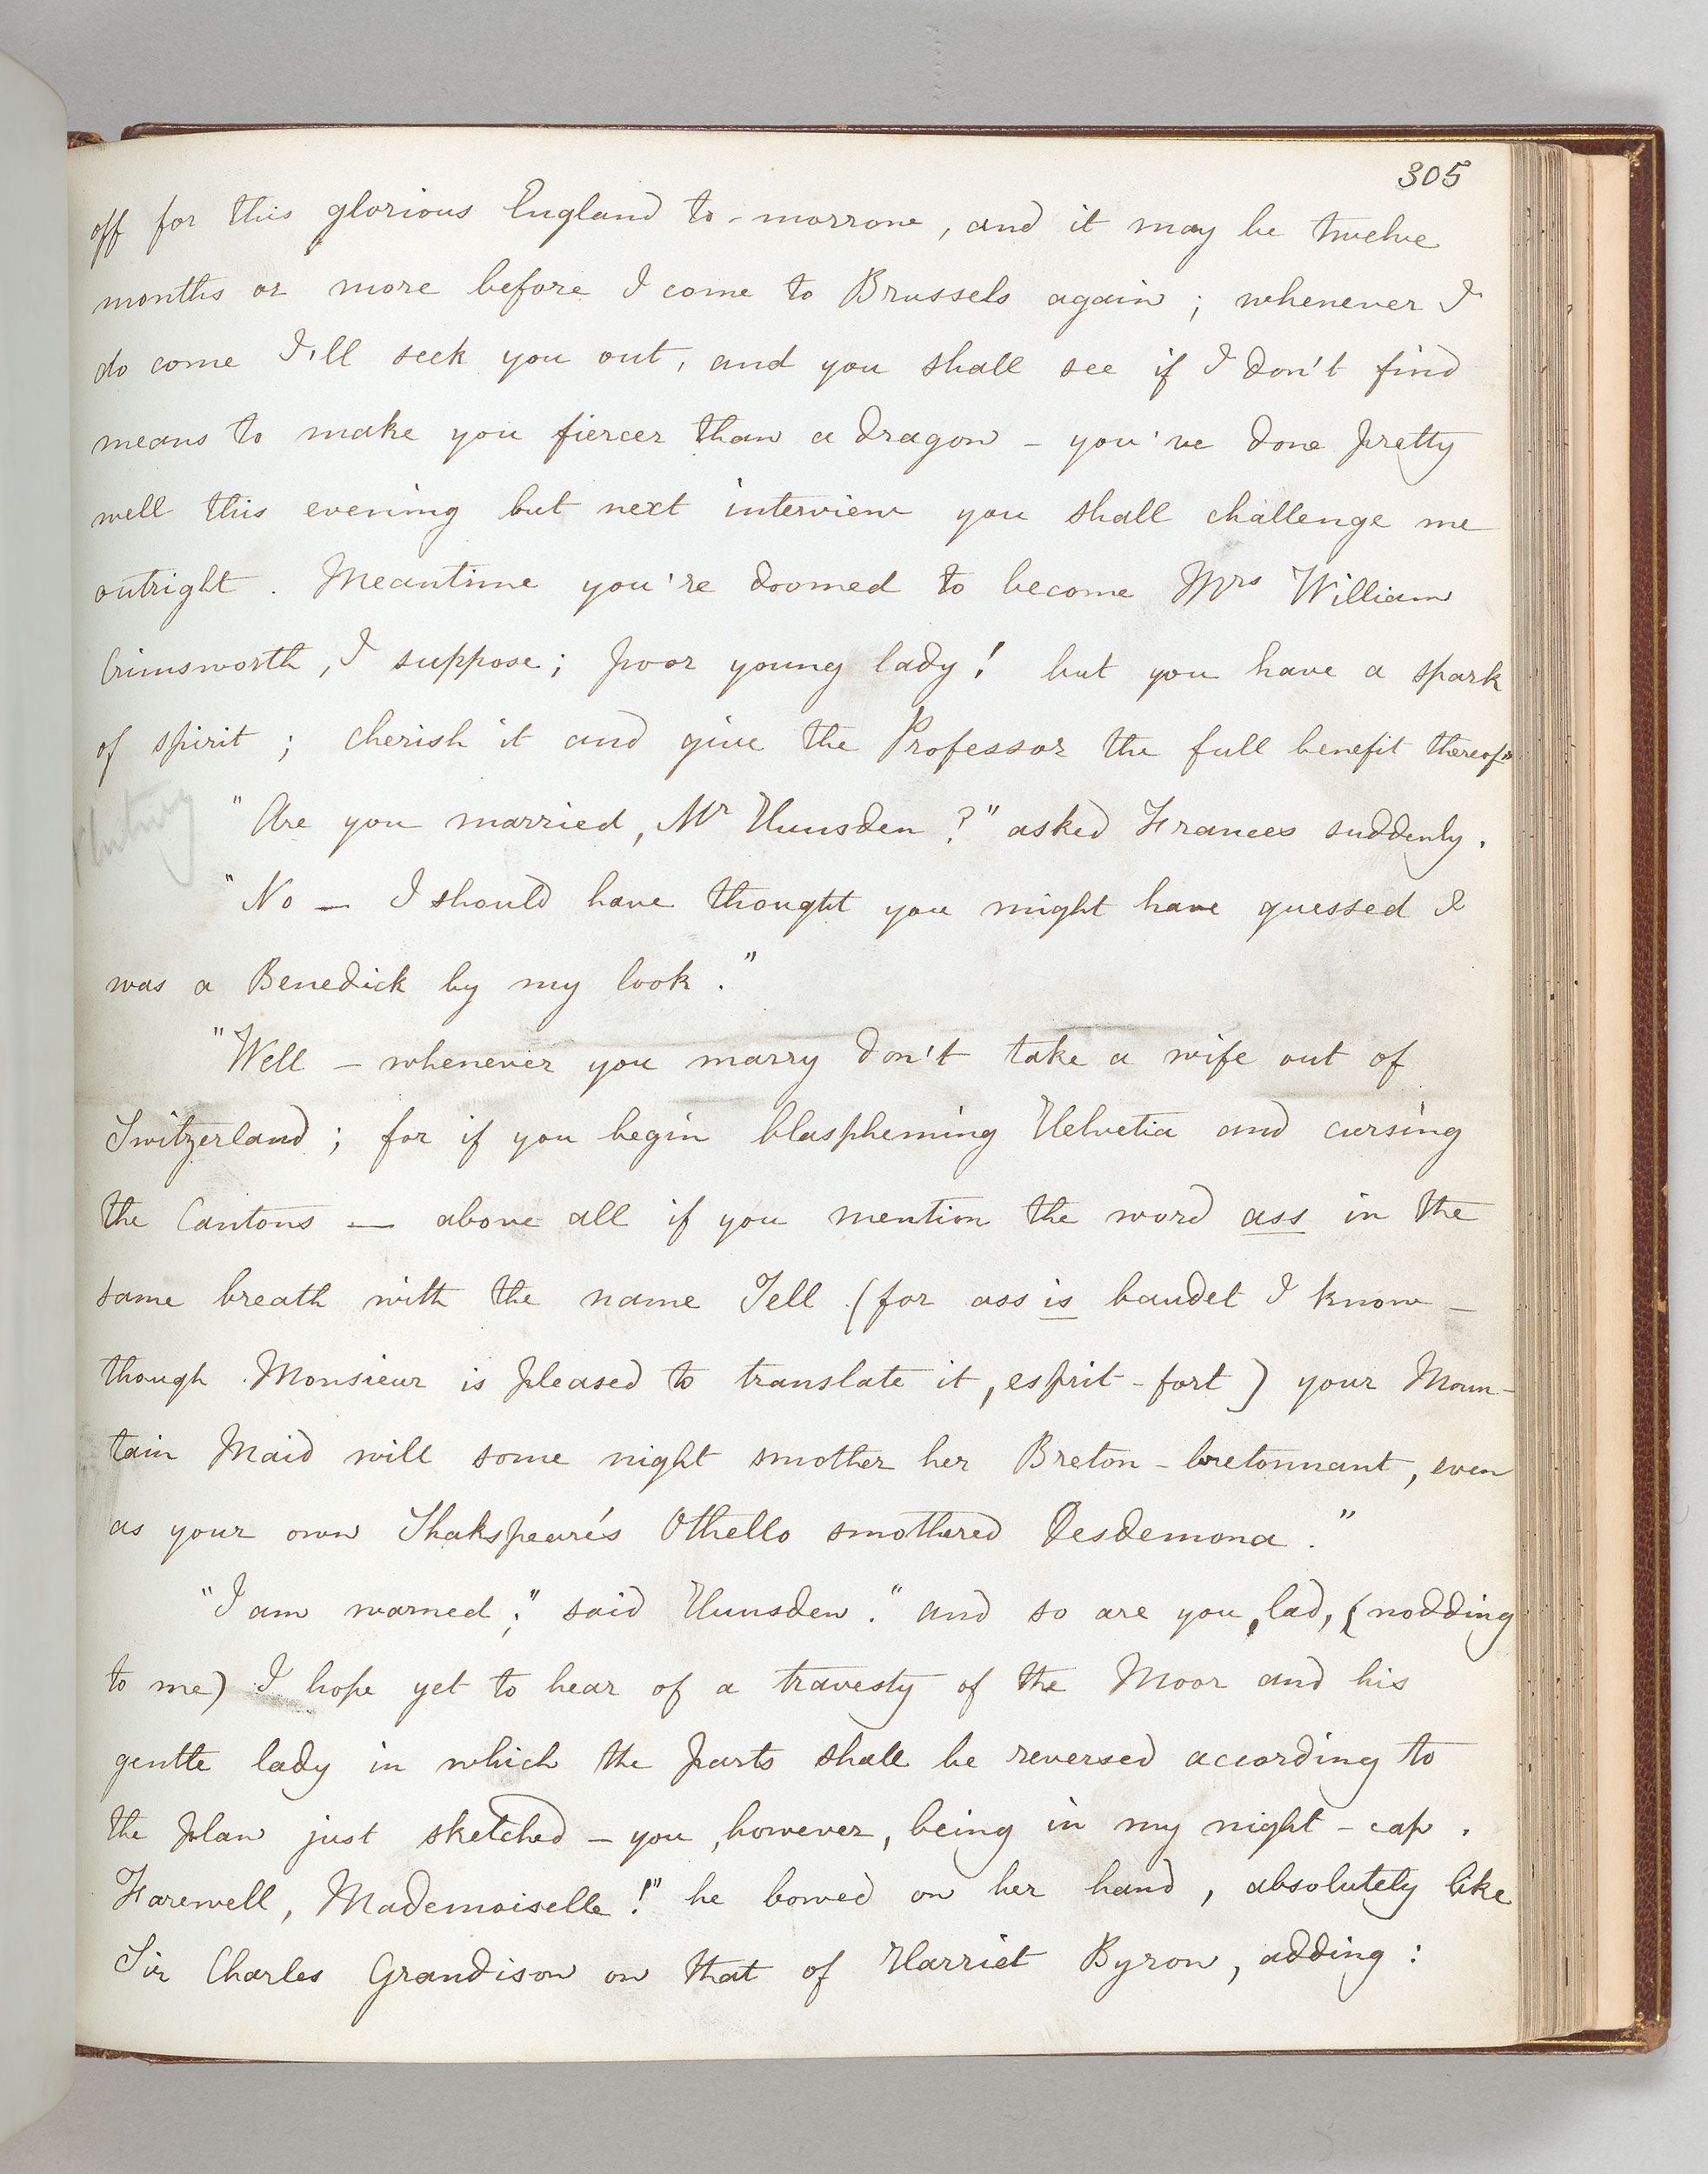 305
off for this glorious England to-morrow, and it may be twelve
months or more before I come to Brussels again; whenever I
do come I'll seek you out, and you shall see if I don't find
means to make you fiercer than a dragon – you've done pretty
well this evening but next interview you shall challenge me
outright. Meantime you're doomed to become Mrs William
Crimsworth, I suppose; poor young lady! but you have a spark
of spirit; cherish it and give the Professor the full benefit thereof."
"Are you married, Mr Hunsden?" asked Frances suddenly.
"No — I should have thought you might have guessed I
was a Benedick by my look."
"Well – whenever you marry don't take a wife out of
Switzerland; for if you begin blaspheming Helvetia and cursing
the Cantons — above all if you mention the word ass in the
same breath with the name Tell (for ass is baudet I know –
though Monsieur is pleased to translate it, esprit-fort) your Moun-
tain Maid will some night smother her Breton-bretonnant, even
as your own Shakspeare's Othello smothered Desdemona."
"I am warned;" said Hunsden. "and so are you, lad, (nodding
to me) I hope yet to hear of a travesty of the Moor and his
gentle lady in which the parts shall be reversed according to
the plan just sketched – you, however, being in my night-cap.
Farewell, Mademoiselle!" he bowed on her hand, absolutely like
Sir Charles Grandison on that of Harriet Byron, adding: